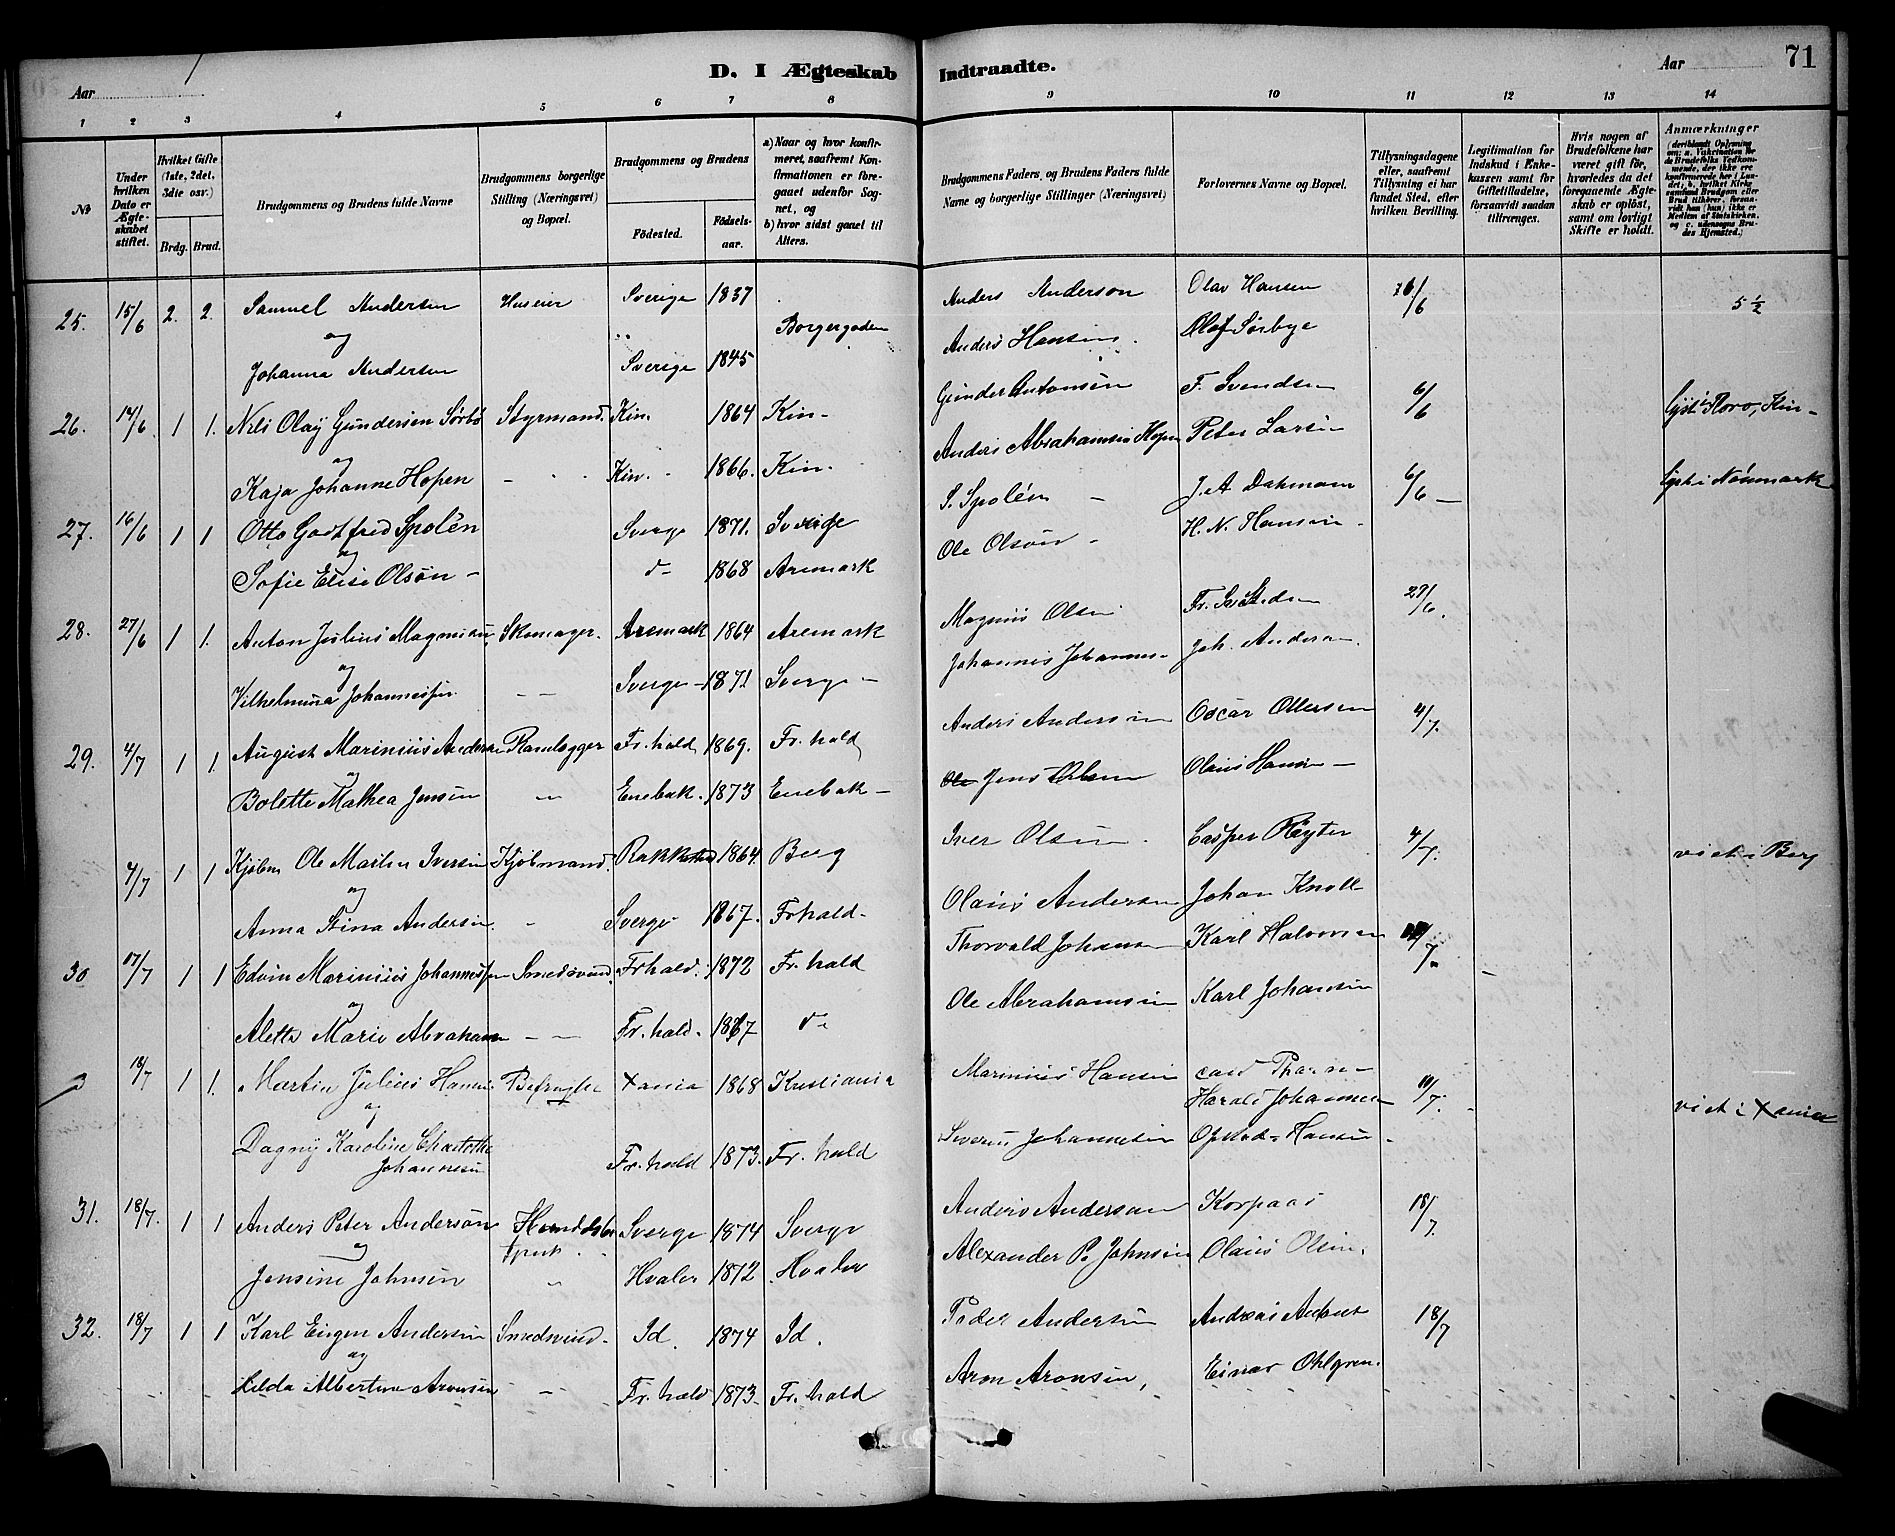 D. I Ægteskab Indtraadte.
71
Aar
Aar
1 2 3 4 5 6 7 8 9 10 11 12 13 14
№
Under hvilken Dato er Ægteskabet stiftet.
Hvilket Gifte (1ste, 2det, 3die osv.)
Brdg. Brud.
Brudgommens og Brudens fulde Navne
Brudgommens borgerlige Stilling (Næringsvei) og Bopæl.
Brudgommens og Brudens
Fødested.
Fødselsaar.
a) Naar og hvor konfirmeret, saafremt Konfirmationen er foregaaet udenfor Sognet, og
b) hvor sidst gaaet til Alters.
Brudgommens Faders, og Brudens Faders fulde Navne og borgerlige Stillinger (Næringsvei)
Forlovernes Navne og Bopæl.
Tillysningsdagene eller, saafremt Tillysning ei har fundet Sted, efter hvilken Bevilling.
Legitimation for Indskud i Enkekassen samt for Giftetilladelse, forsaavidt saadan tiltrænges.
Hvis nogen af Brudefolkene har været gift før, hvorledes da det foregaaende Ægteskab er opløst, samt om lovligt Skifte er holdt.
Anmærkninger (deriblandt Oplysning om: a. Vakcination for de Brudefolks Vedkommende, der ikke ere konfirmerede her i Landet; b. hvilket Kirkesamfund Brudgom eller Brud tilhører, forsaavidt han (hun) ikke er Medlem af Statskirken, og c. udensogns Brudes Hjemsted.)
25. 15/6 2. 2. Samuel Andersen Huseier Sverige 1837 Anders Anderson Olav Hansen /6 5 1/2
og Borgergaden
Johanna Andersen Sverige 1845 Anders Hansen Olaf Sørbye
26. 14/6 1 1. Nils Olaf Gundersen Sørbø Styrmand. Kin. 1864 Kin- Gunder Antonsen F. Svendsen 6/6 Florø, Kin-
og
Kaja Johanne Hopen Kin. 1866. Kin. Anders Abrahamsen Hopen Peter Larsen
27. 16/6 1 1 Otto Gottfred Spolén Sverge 1871. Sverige S. Spolén J. A Dahmann 6/6
og
Sofie Elise Olsøn - d- 1868 Aremark Ole Olsøn - H. N. Hansen
28. 27/6 1 1. Anton Julius Magnusen Skomager. Aremark 1864 Aremark Magnus Olsen 27/6.
og
Vilhelmina Johannessen Sverge - 1871 Sverge - Johannes Johannes- Joh. Anderse
29. 4/7 1 1. August Marinius Andersen Fr. hald 1869. Fr. hald Anders Andersen Oscar Ottersen 4/7.
og
Bolette Mathea Jensen Enebak. 1873 Enebak - Jens Olsen Olaus Hansen
4/7 1 1 Kjøbm Ole Martin Iversen Kjøbmand. Rakkestad 1864. Berg Iver Olsen Casper Røyter 4/7. viet i Berg
og
Anna Stina Andersen. Sverge 1867. Frhald- Olaus Andersen Johan Knoll
30 17/7 1 1 Edvin Marinius Johannessen Smedsvend. Frhald. 1872 Fr. hald Thorvald Johansen Karl Halvorsen /7.
og
Alette Marie Abraham Fr. hald. 1867 d- Ole Abrahamsen Karl Johansen
18/7 1 1. Martin Julius Hansen Befragter Xania 1868 Kristiania Marinius Hansen /7. viet i Xania
og Harald Johannesen
Dagny Karoline Charlotte Fr. hald 1873. Fr. hald Severin Johannesen Opstad - Hansen
Johannesen
31. 18/7. 1 1 Anders Peter Anderson Sverge 1874 Sverge Anders Anderson Korpaas 18/7.
og
Jensine Johnsen Hvaler 1872 Hvaler Alexander P. Johnsen Olaus Olsen.
32. 18/7 1 1 Karl Eugen Andersen Smedsvend. Id. 1874 Id. Peder Andersen Andreas 18/7
og
Hilda Albertine Aronsen Fr. hald 1873. Fr. hald Aron Aronsen, Einar Ohlgren.